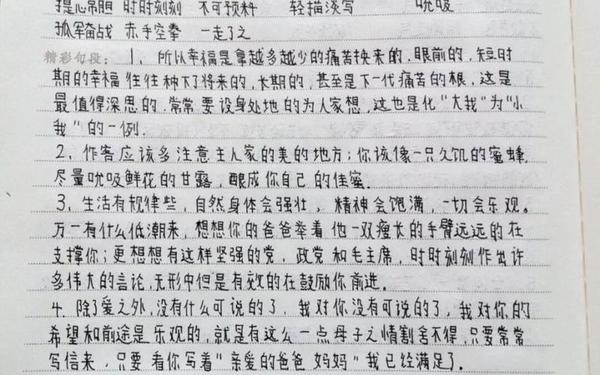 提心吊胆 时时刻刻 不可预料 轻描淡写 吮吸
孤军奋战 赤手空拳 一走了之
精彩句段：1、所以幸福是拿越多越少的痛苦换来的,眼前的,短时
期的幸福往往种下了将来的,长期的,甚至是下一代痛苦的根,这是
最值得深思的.常常要设身处地的为人家想,这也是化“大我”为“小
我”的一例.
2、作客应该多注意主人家的美的地方；你该像一只久饥的蜜蜂
尽量吮吸鲜花的甘露,酿成你自己的佳蜜.
3、生活有规律些,自然身体会强壮,精神会饱满,一切会乐观。
万一有什么低潮来,想想你的爸爸举着他一双瘦长的手臂远远的在
支撑你；更想想有这样坚强的党,政党和毛主席,时时刻刻作出许
多伟大的言论,无形中但是有效的在鼓励你前进。
4.除了爱之外,没有什么可说的了,我对你没有可说的了,我对你的
希望和前途是乐观的,就是有这么一点母子之情割舍不得.只要常常
写信来,只要看你写着“亲爱的爸爸妈妈”我已经满足了.